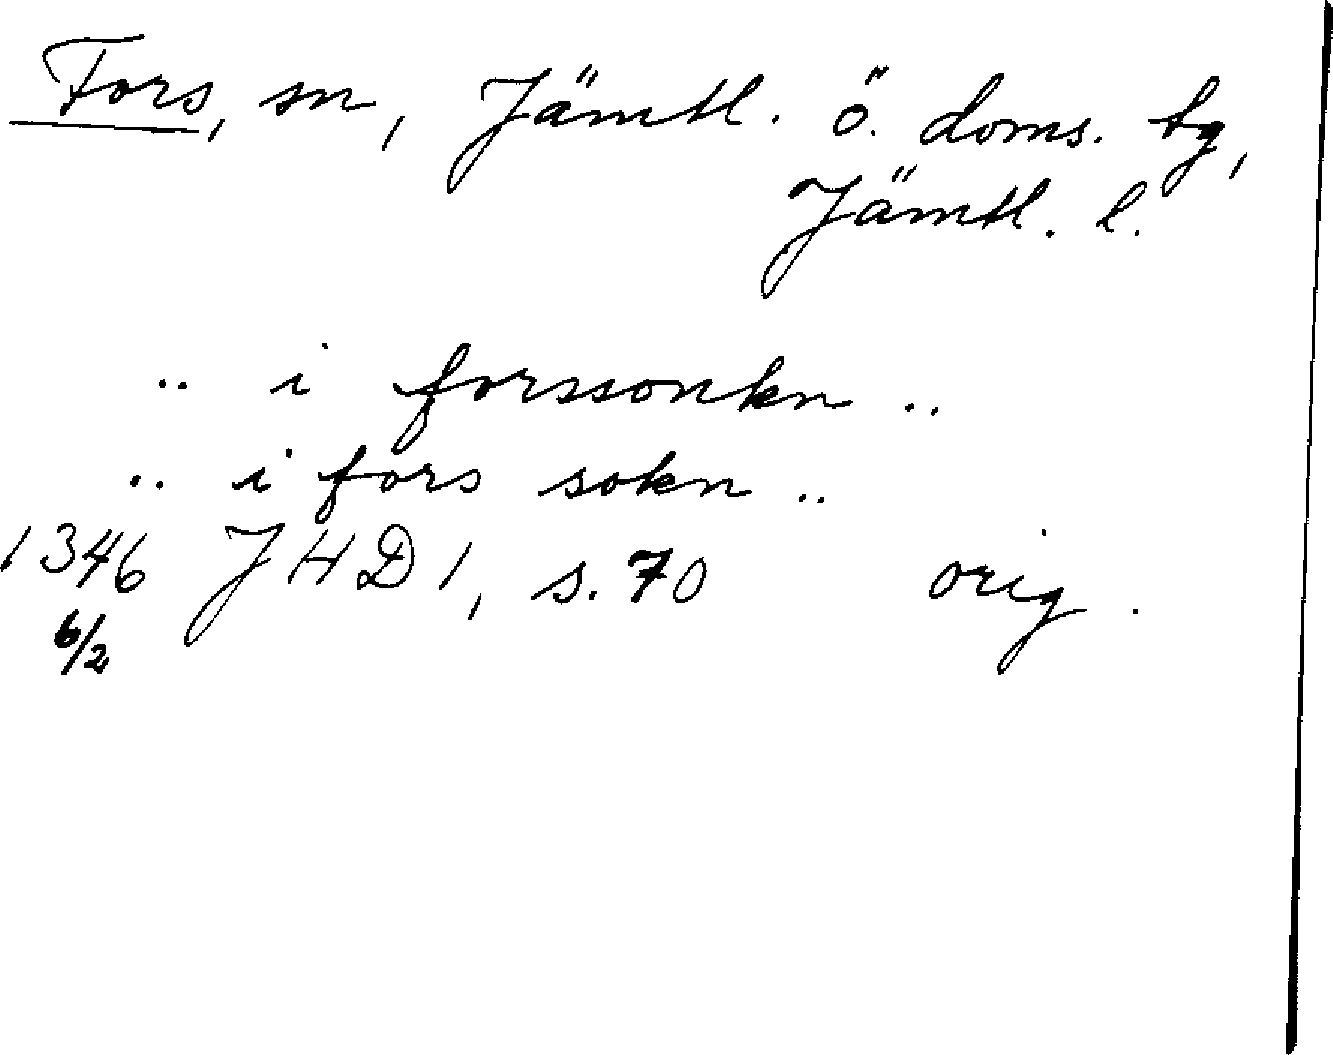 Fors, sn, Jämtl. ö. doms. tg,
Jämtl. l.
.. i forssonkn ..
.. i fors sokn ..
1346 JHD 1, s. 70 orig.
6/2